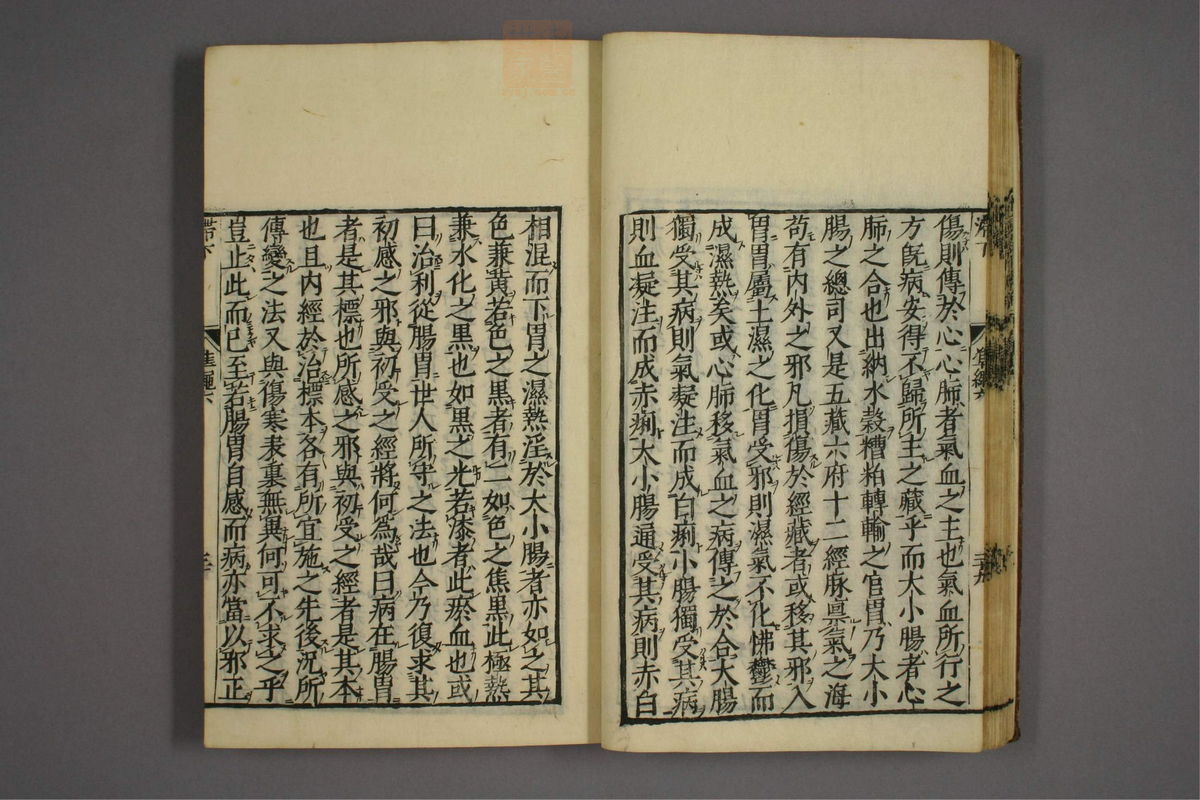 傷則傳於心心肺者氣血之主也氣血所行之
方旣病安得不歸所主之藏乎而大小腸者心
肺之合也出納水榖糟粕轉輸之官胃乃大小
腸之總司又是五藏六府十二經脉稟氣之海
苟有內外之邪凡損傷於經藏者或移其邪入
胃胃屬土濕之化胃受邪則濕氣不化怫鬱而
成濕熱矣或心肺移氣血之病傳之於合大腸
獨受其病則氣凝注而成白痢小腸獨受其病
則血凝注而成赤痢大小腸通受其病則赤白
相混而下胃之濕熱淫於大小腸者亦如之其
色兼黃若色之黑者有二如色之焦黑此極熱
兼水化之黑也如黑之光若漆者此瘀血也或
曰治利從腸胃世人所守之法也今乃復求其
初感之邪與初受之經將何為哉曰病在腸胃
者是其標也所感之邪與初受之經者是其本
也且內經於治標本各有所宜施之先後況所
傳變之法又與傷寒表裏無異何可不求之乎
豈止此而已至若腸胃自感而病亦當以邪正
滯下